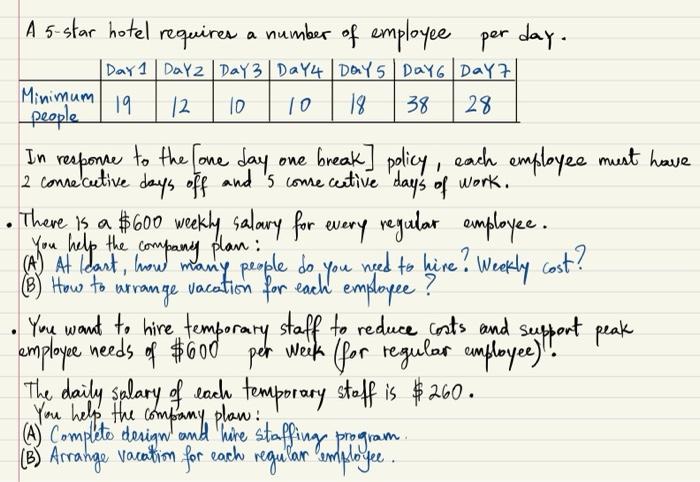 A 5-star hotel requires a number of employee per day.
Day 1 Day 2 Day 3 Day 4 Day 5 Day 6 Day 7
Minimum people 19 12 10 10 18 38 28
In response to the [one day one break] policy, each employee must have
2 consecutive days off and 5 consecutive days of work.
• There is a $600 weekly salary for every regular employee.
You help the company plan:
(A) At least, how many people do you need to hire? Weekly cost?
(B) How to arrange vacation for each employee?
• You want to hire temporary staff to reduce costs and support peak
employee needs of $600 per week (for regular employee)".
The daily salary of each temporary staff is $260.
You help the company plan:
(A) Complete design and hire staffing program.
(B) Arrange vacation for each regular employee.